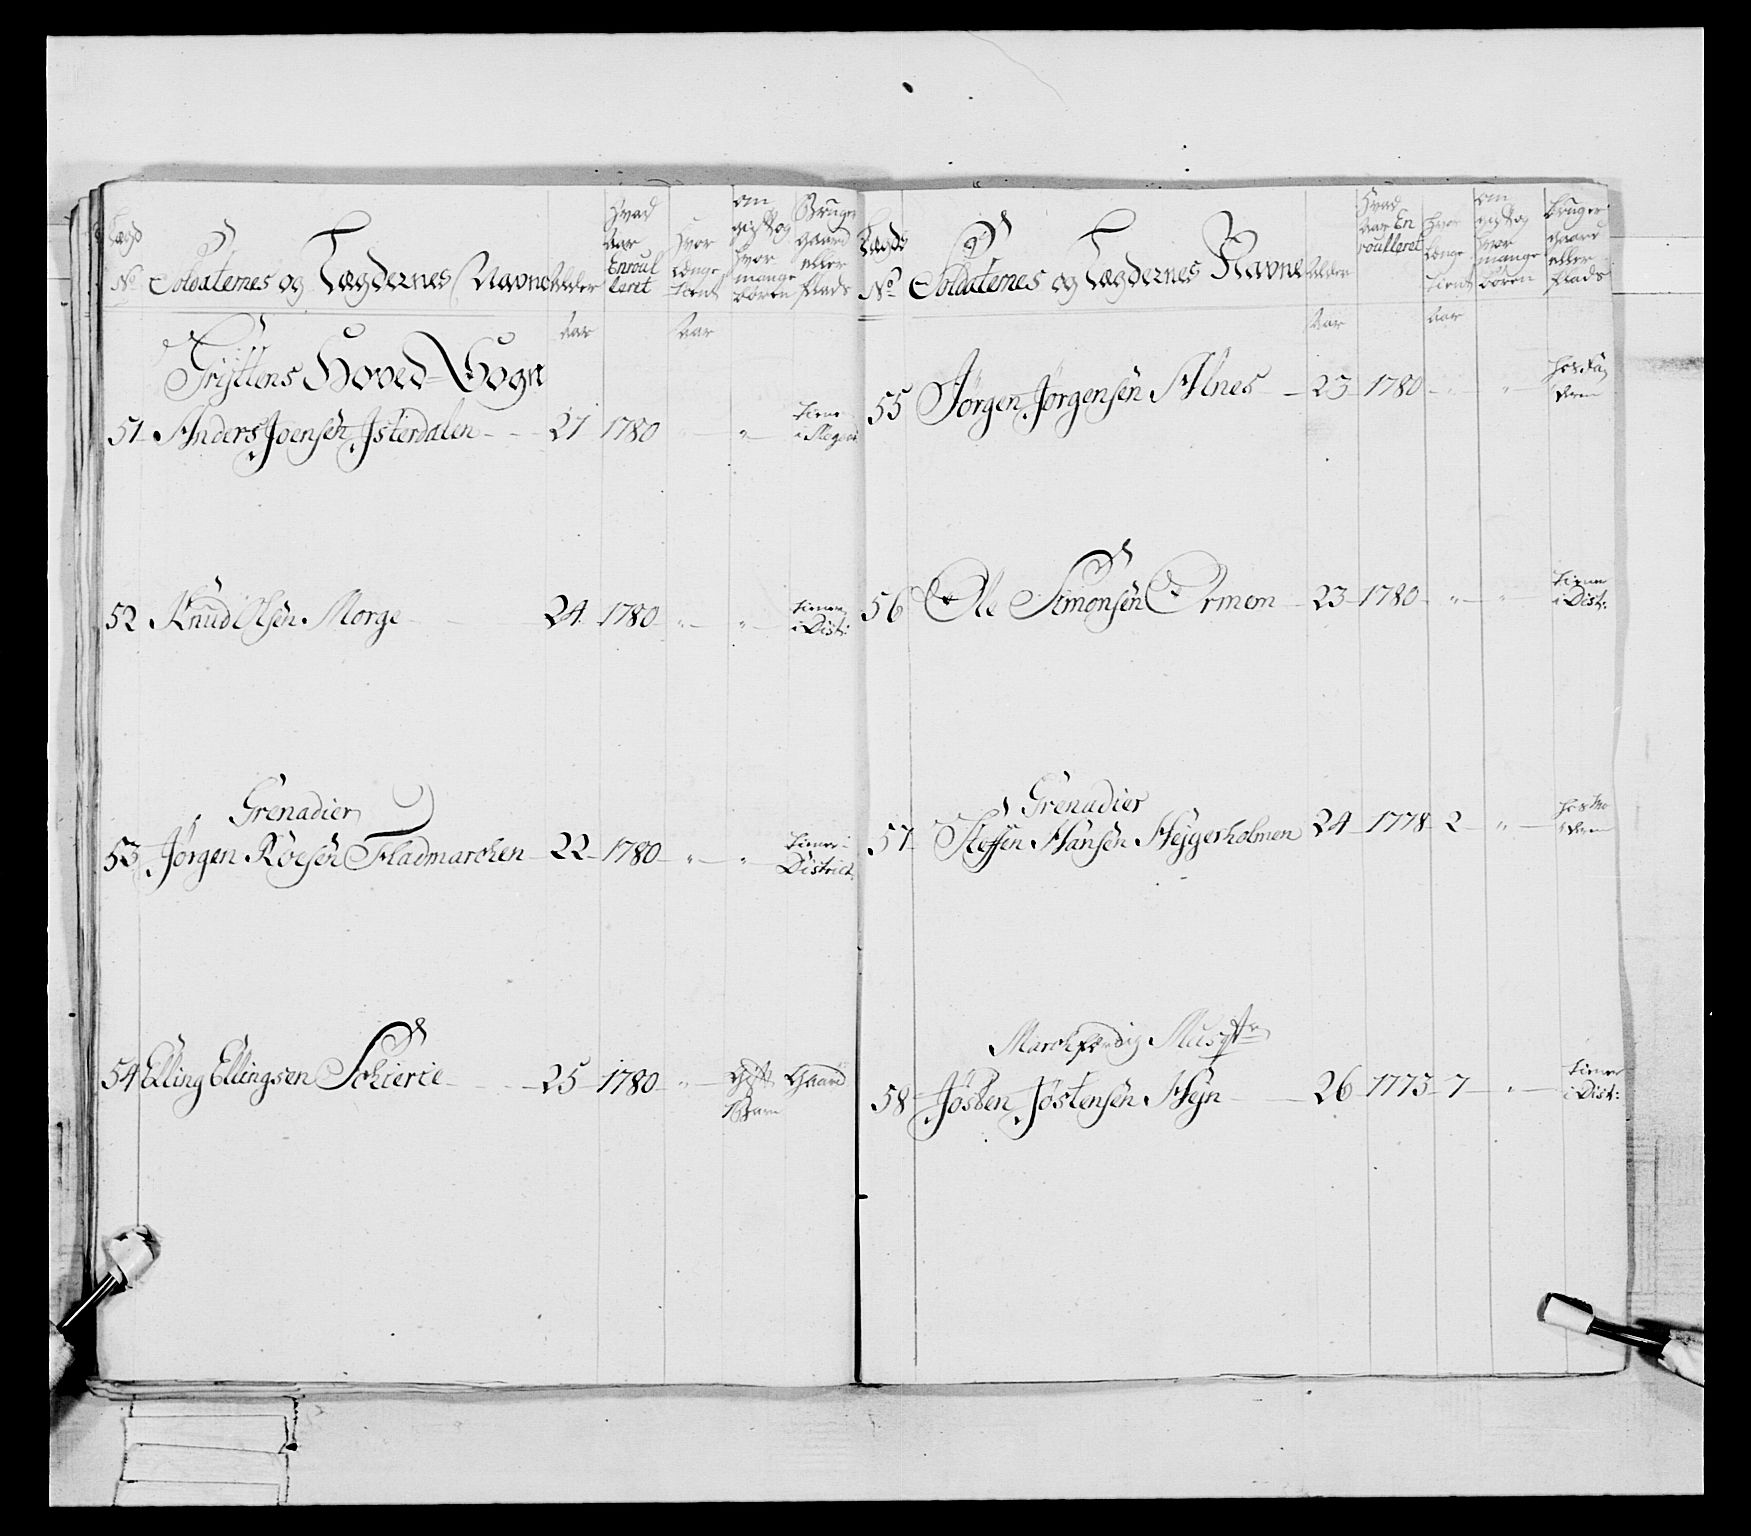 Lægd No
Soldaternes og Lægdernes Navne
Alder
Hvad Aar Enroulleret
Hvor Længe tient
om gift og hvor mange Børen
Bruger gaard eller Plads
Aar
Aar
Gryttens Hoved-Sogn
51 Anders Joensen Isterdalen 21 1780 " "
52 Knud Olsen Morge 24 1780 " " tiener i Dist:
Grenadier
53 Jørgen Roesen Fladmarchen 22 1780 " " tiener i District
54 Elling Ellingsen Schierie 25 1780 " Gift Gaard
1 Barn
Lægds No
Soldaternes og Lægdernes Navne
Alder
Hvad Aar Enroulleret
Hvor Længe tient
om gift og hvor mange Børen
bruger gaard eller Plads
Aar
Aar
55 Jørgen Jørgensen Alnes 23 1780 " " hos Faderen
56 Ole Simonsen Ormem 23 1780 " " tiener i Dist:
Grenadier
57 Steffen Hansen Hejgerholmen 24 1778 2 " hos Moderen
Marchfærdig Musqtr
58 Josten Jostensen Hejn 26 1773 7 " tiener i Dist: